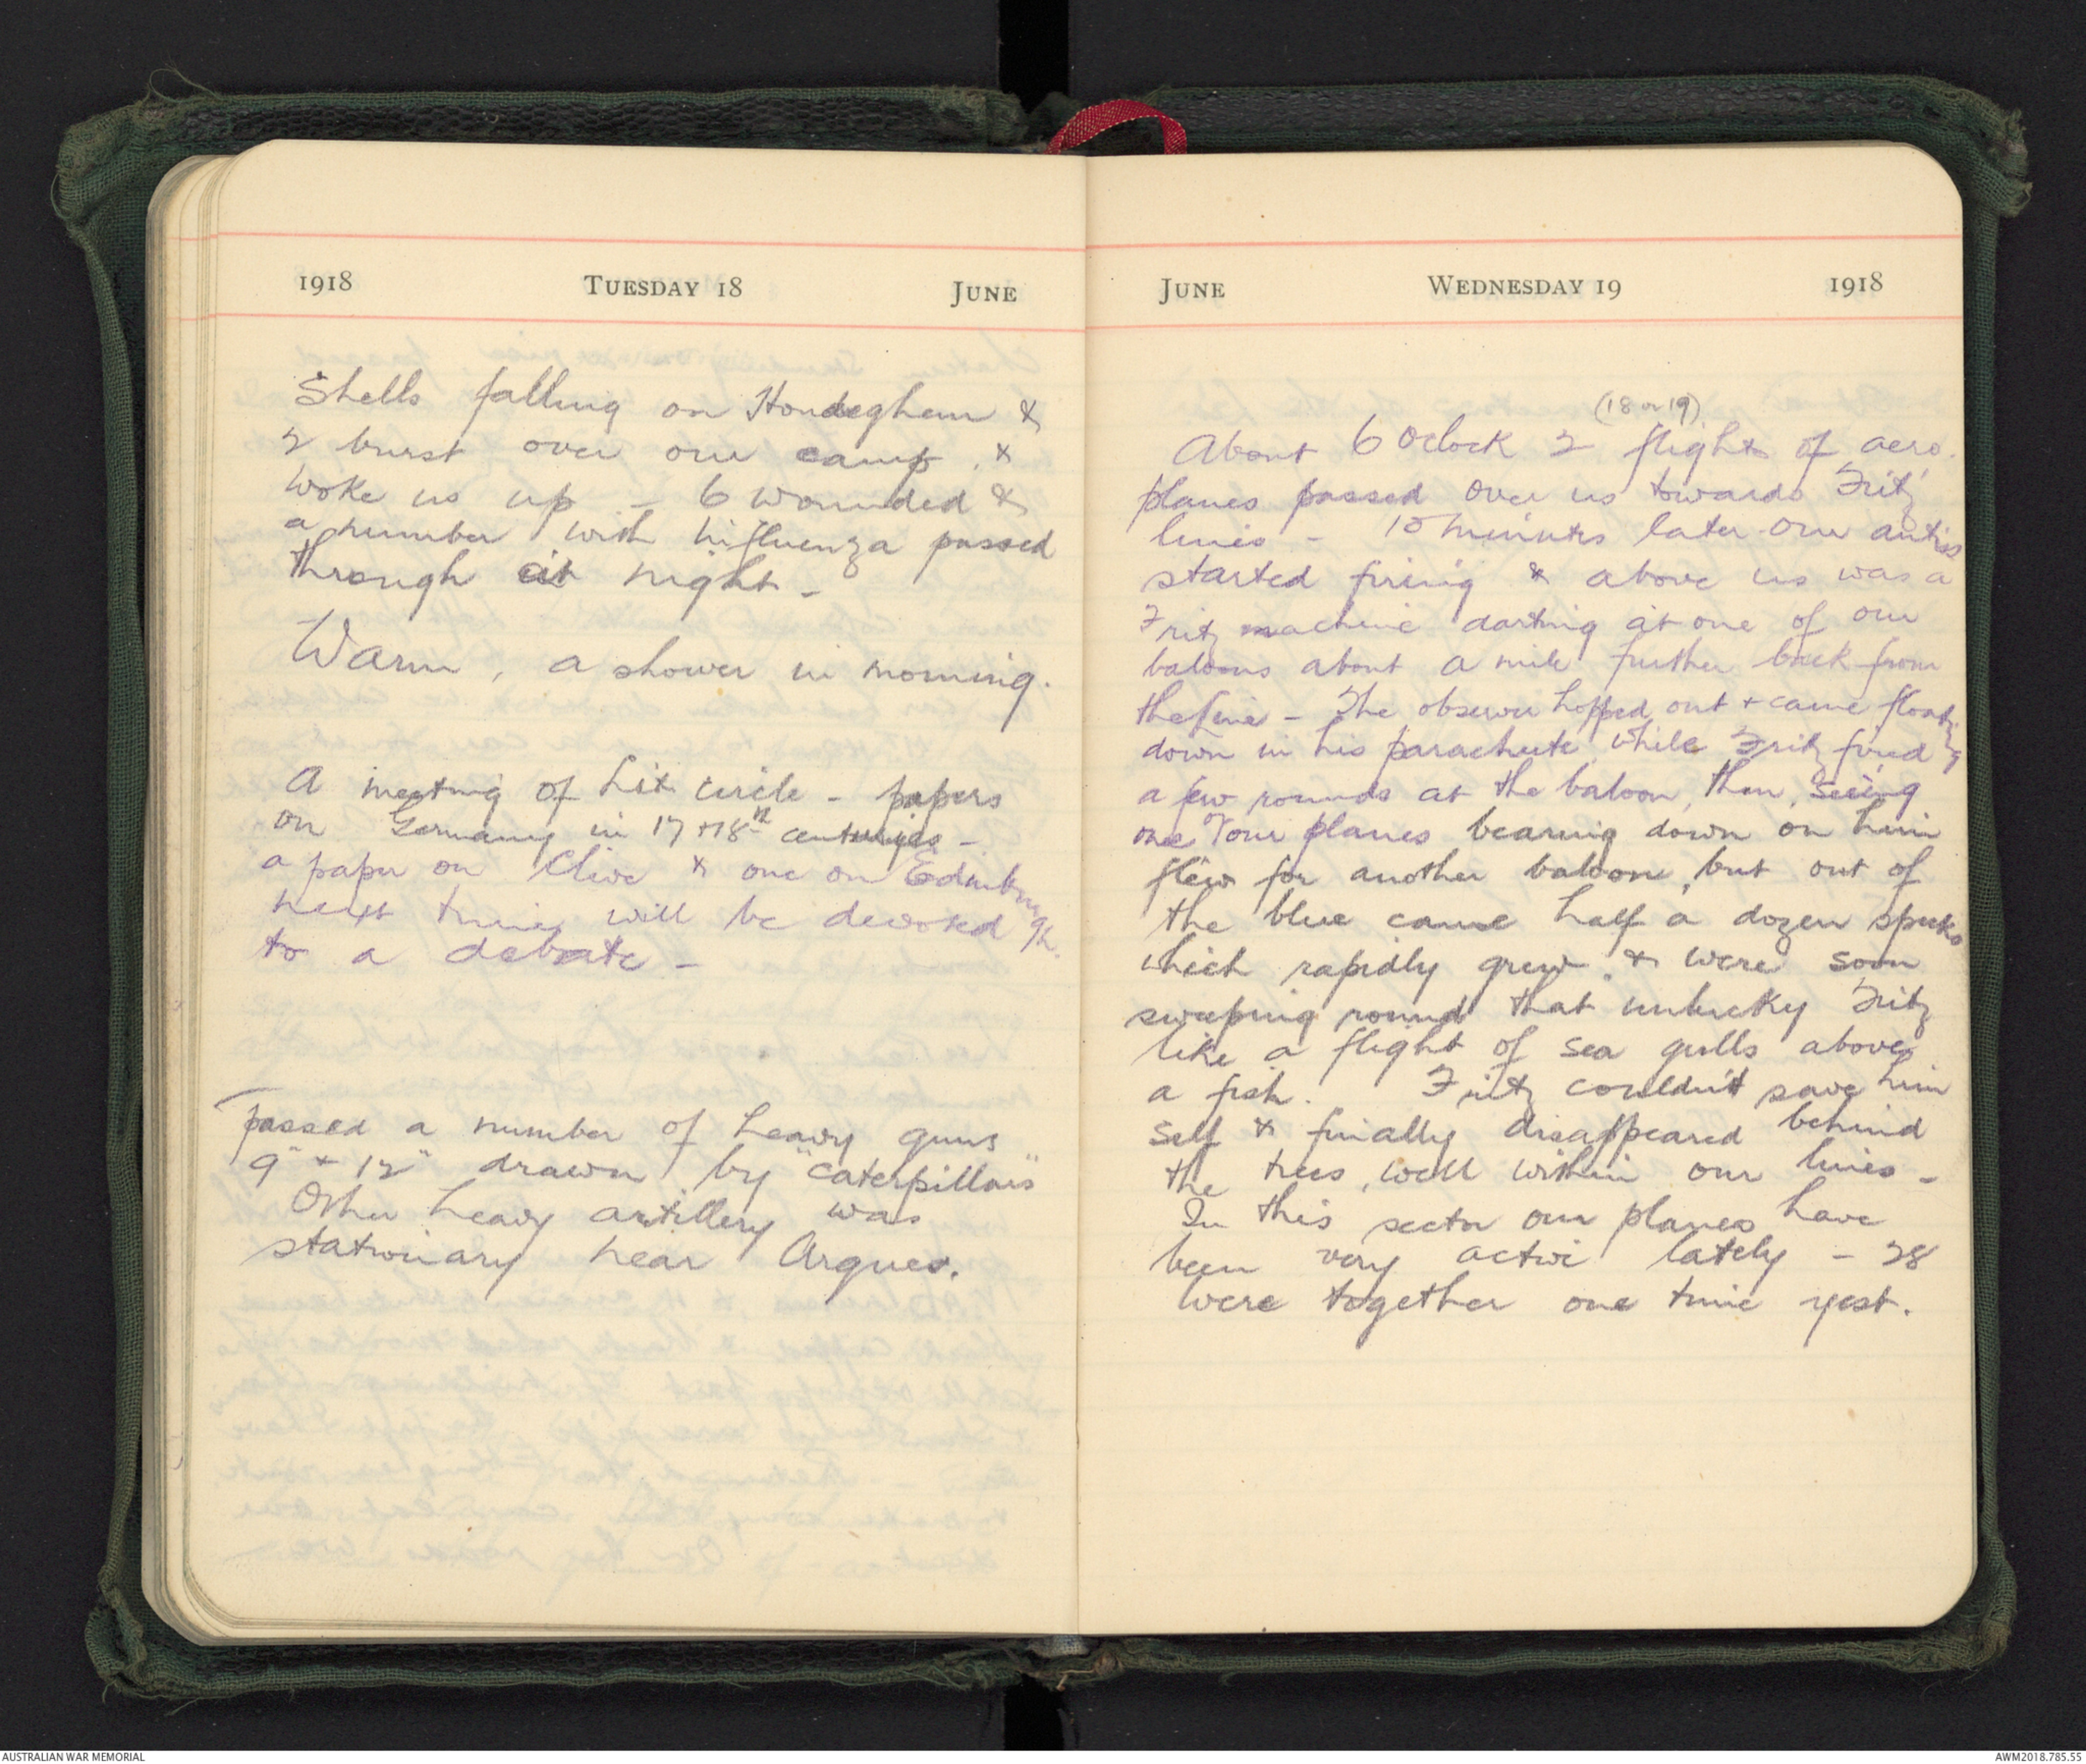 1918 TUESDAY 18 JUNE
Shells falling on Hondeghem &
2 burst over our camp, &
woke us up - 6 wounded &
a number with influenza passed
through at night -
Warm, a shower in morning.
A meeting of Lit circle - papers
on Germany in 17 + 18th centuries -
a paper on Clive & one on Edinburgh.
next time will be devoted
to a debate -
passed a number of heavy guns
9" + 12" drawn by "caterpillars"
Other heavy artillery was
stationary near Arques.
JUNE WEDNESDAY 19 1918
(18 or 19)
About 6 Oclock 2 flights of aero-
planes passed over us towards Fritz'
lines - 15 minutes later our antis
started firing & above us was a
Fritz machine darting at one of our
baloons about a mile further back from
the line - The observer hopped out + came floating
down in his parachute while Fritz fired
a few rounds at the baloon, then, seeing
one of our planes bearing down on him
flew for another baloon, but out of
the blue came half a dozen specks
which rapidly grew & were soon
sweeping round that unlucky Fritz
like a flight of sea gulls above
a fish. Fritz couldn't save him
self & finally disappeared behind
the trees, well within our lines -
In this sector our planes have
been very active lately - 28
were together one time yest.
AUSTRALIAN WAR MEMORIAL
AWM2018.785.55